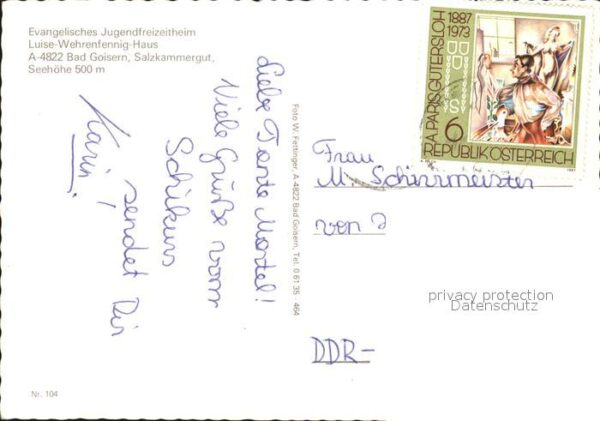 Evangelisches Jugendfreizeitheim
Luise-Wehrenfennig-Haus
A-4822 Bad Goisern, Salzkammergut,
Seehöhe 500 m
Liebe Tante Martel!
Viele Grüße vom
Schikurs
sendet Dir
Karin!
Foto W. Fettinger, A-4822 Bad Goisern, Tel. 0 61 35 - 464
A. PARIS GÜTERSLOH 1887
1973
6 S
REPUBLIK ÖSTERREICH
Frau
M. Schirrmeister
von
DDR-
privacy protection
Datenschutz
Nr. 104